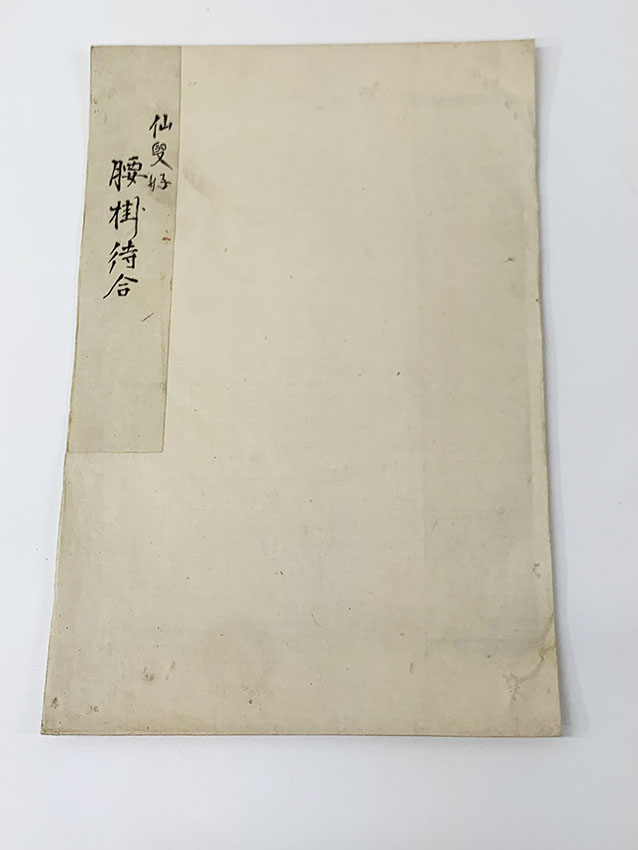 仙叟好
腰掛待合